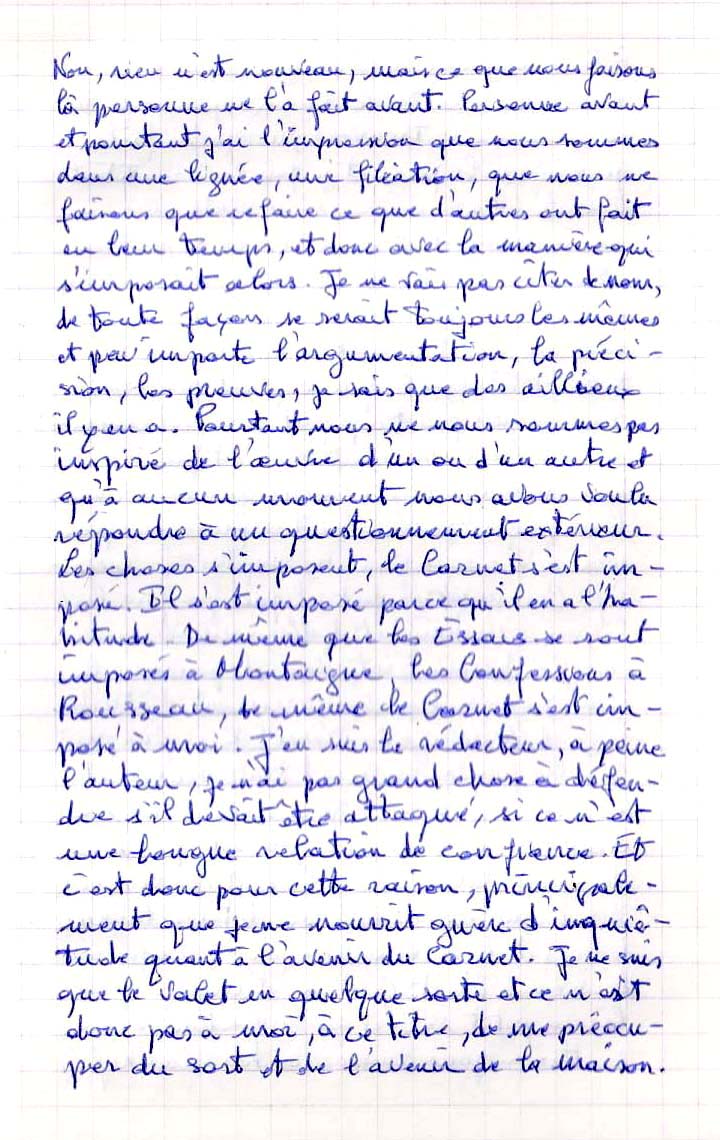 Non, rien n'est nouveau, mais ce que nous faisons
là personne ne l'a fait avant. Personne avant
et pourtant j'ai l'impression que nous sommes
dans une lignée, une filiation, que nous ne
faisons que refaire ce que d'autres ont fait
en leur temps, et donc avec la manière qui
s'imposait alors. Je ne vais pas citer de noms,
de toute façon se serait toujours les mêmes
et peu importe l'argumentation, la préci-
sion, les preuves, je sais que des ailleux
il y en a. Pourtant nous ne nous sommes pas
inspiré de l'œuvre d'un ou d'un autre et
qu'à aucun moment nous avons voulu
répondre à un questionnement extérieur.
Les choses s'imposent, le Carnet s'est im-
posé. Il s'est imposé parce qu'il en a l'ha-
bitude. De même que les Essais se sont
imposés à Montaigne, les Confessions à
Rousseau, de même le Carnet s'est im-
posé à moi. J'en suis le rédacteur, à peine
l'auteur, je n'ai pas grand chose à défen-
dre s'il devait être attaqué, si ce n'est
une longue relation de confiance. Et
c'est donc pour cette raison, principale-
ment que je ne nourrit guère d'inquié-
tude quant à l'avenir du Carnet. Je ne suis
que le valet en quelque sorte et ce n'est
donc pas à moi, à ce titre, de me préocu-
per du sort et de l'avenir de la maison.